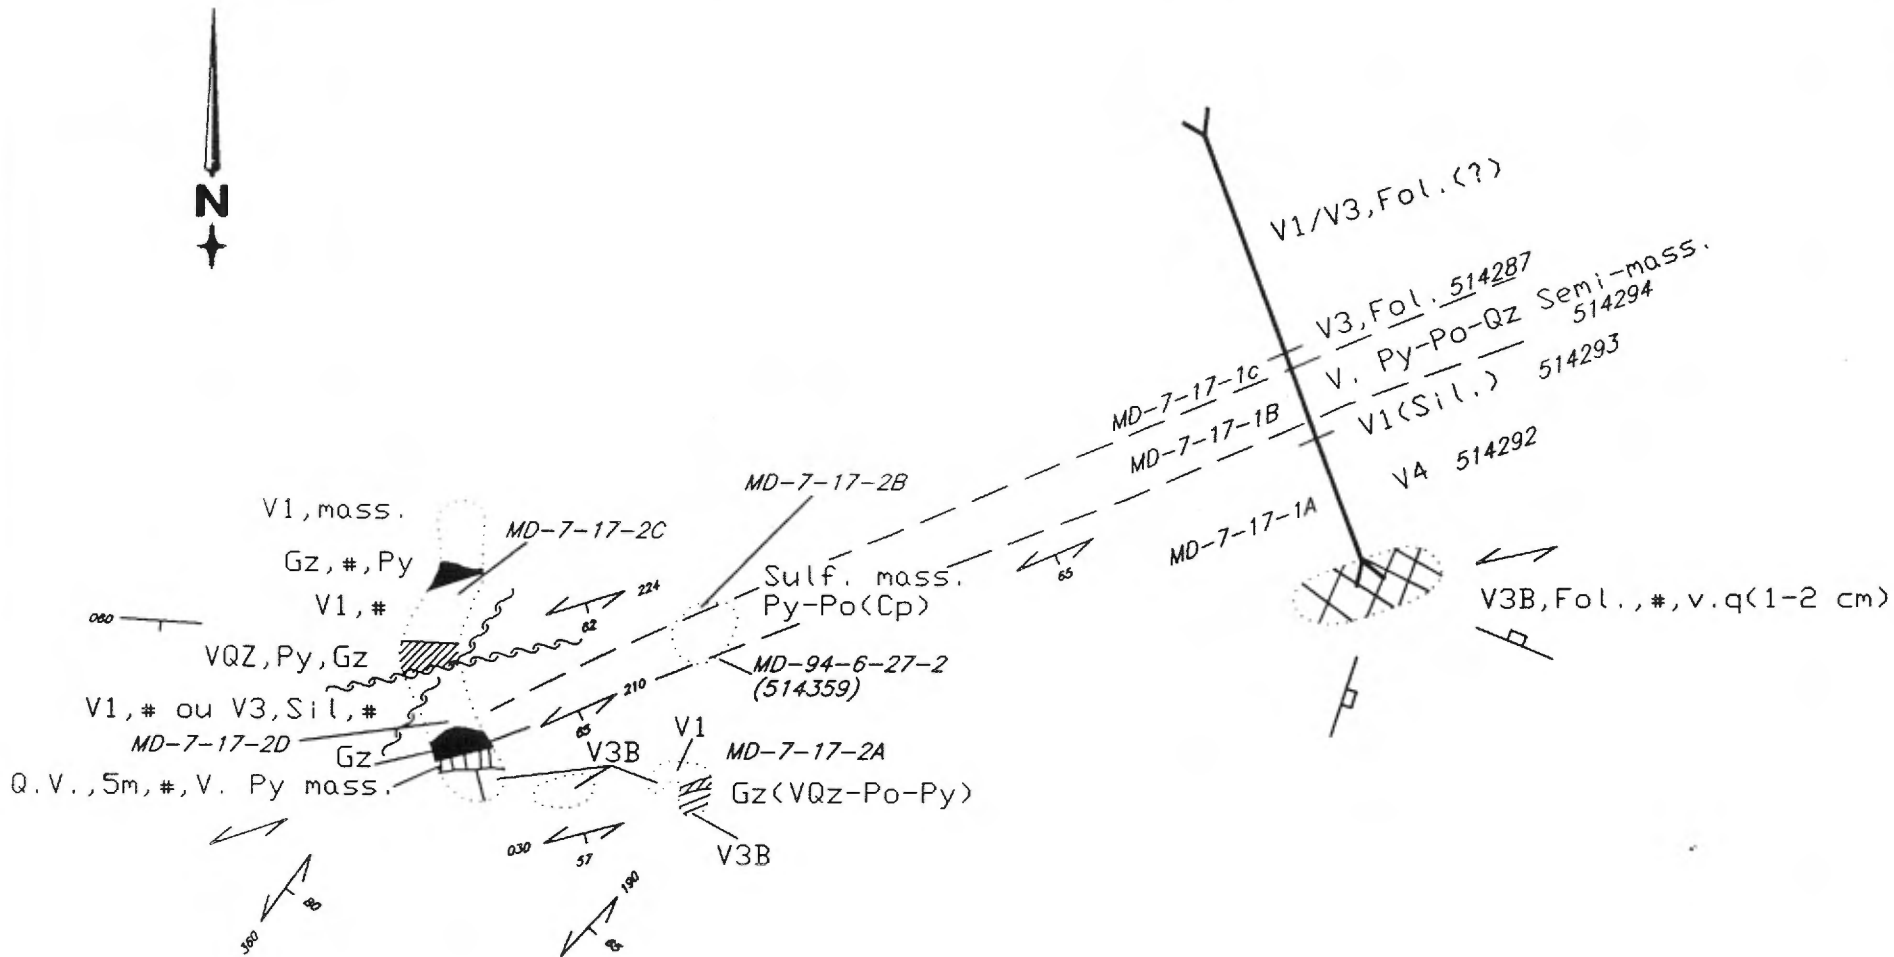 N
V1/V3,Fol.(?)
V3,Fol. 514287
V. Py-Po-Qz Semi-mass.
514294
V1(Sil.) 514293
V4 514292
MD-7-17-1c
MD-7-17-1B
MD-7-17-1A
65
V3B,Fol.,#,v.q(1-2 cm)
MD-7-17-2B
V1,mass.
MD-7-17-2C
Gz,#,Py
V1,#
Sulf. mass.
Py-Po(Cp)
224
62
060
VQZ,Py,Gz
MD-94-6-27-2
(514359)
210
65
V1,# ou V3,Sil,#
MD-7-17-2D
Gz
Q.V.,5m,#,V. Py mass.
V3B
V1
MD-7-17-2A
Gz(VQz-Po-Py)
V3B
030
57
360
80
190